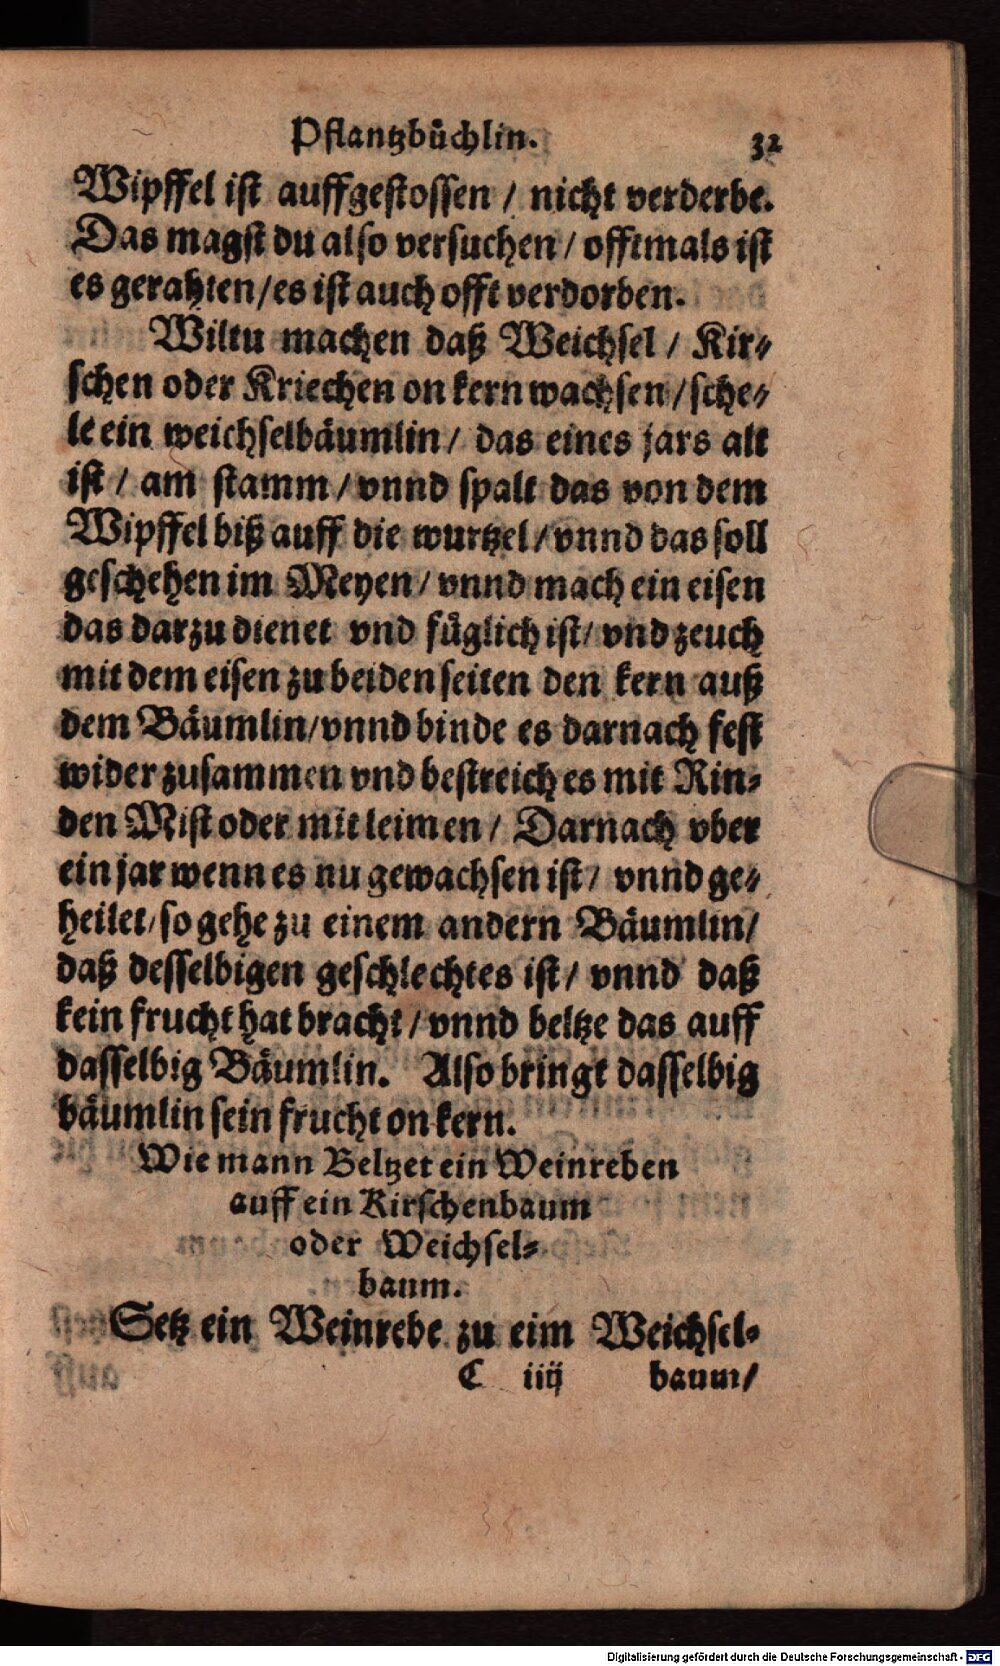 Pflantzbůchlin. 32
Wipffel ist auffgestossen / nicht verderbe.
Das magst du also versuchen / offtmals ist
es gerahten / es ist auch offt verdorben.
Wiltu machen daß Weichsel / Kir⸗
schen oder Kriechen on kern wachsen / sche⸗
le ein weichselbäumlin / das eines jars alt
ist / am stamm / vnnd spalt das von dem
Wipffel biß auff die wurtzel / vnnd das soll
geschehen im Meyen / vnnd mach ein eisen
das darzu dienet vnd fůglich ist / vnd zeuch
mit dem eisen zu beiden seiten den kern auß
dem Bäumlin / vnnd binde es darnach fest
wider zusammen vnd bestreich es mit Rin⸗
den Mist oder mit leimen / Darnach vber
ein jar wenn es nu gewachsen ist / vnnd ge⸗
heilet / so gehe zu einem andern Bäumlin /
daß desselbigen geschlechtes ist / vnnd daß
kein frucht hat bracht / vnnd beltze das auff
dasselbig Bäumlin. Also bringt dasselbig
bäumlin sein frucht on kern.
Wie mann Beltzet ein Weinreben
auff ein Kirschenbaum
oder Weichsel⸗
baum.
Setz ein Weinrebe zu eim Weichsel⸗
C iiij baum /
Digitalisierung gefördert durch die Deutsche Forschungsgemeinschaft - DFG